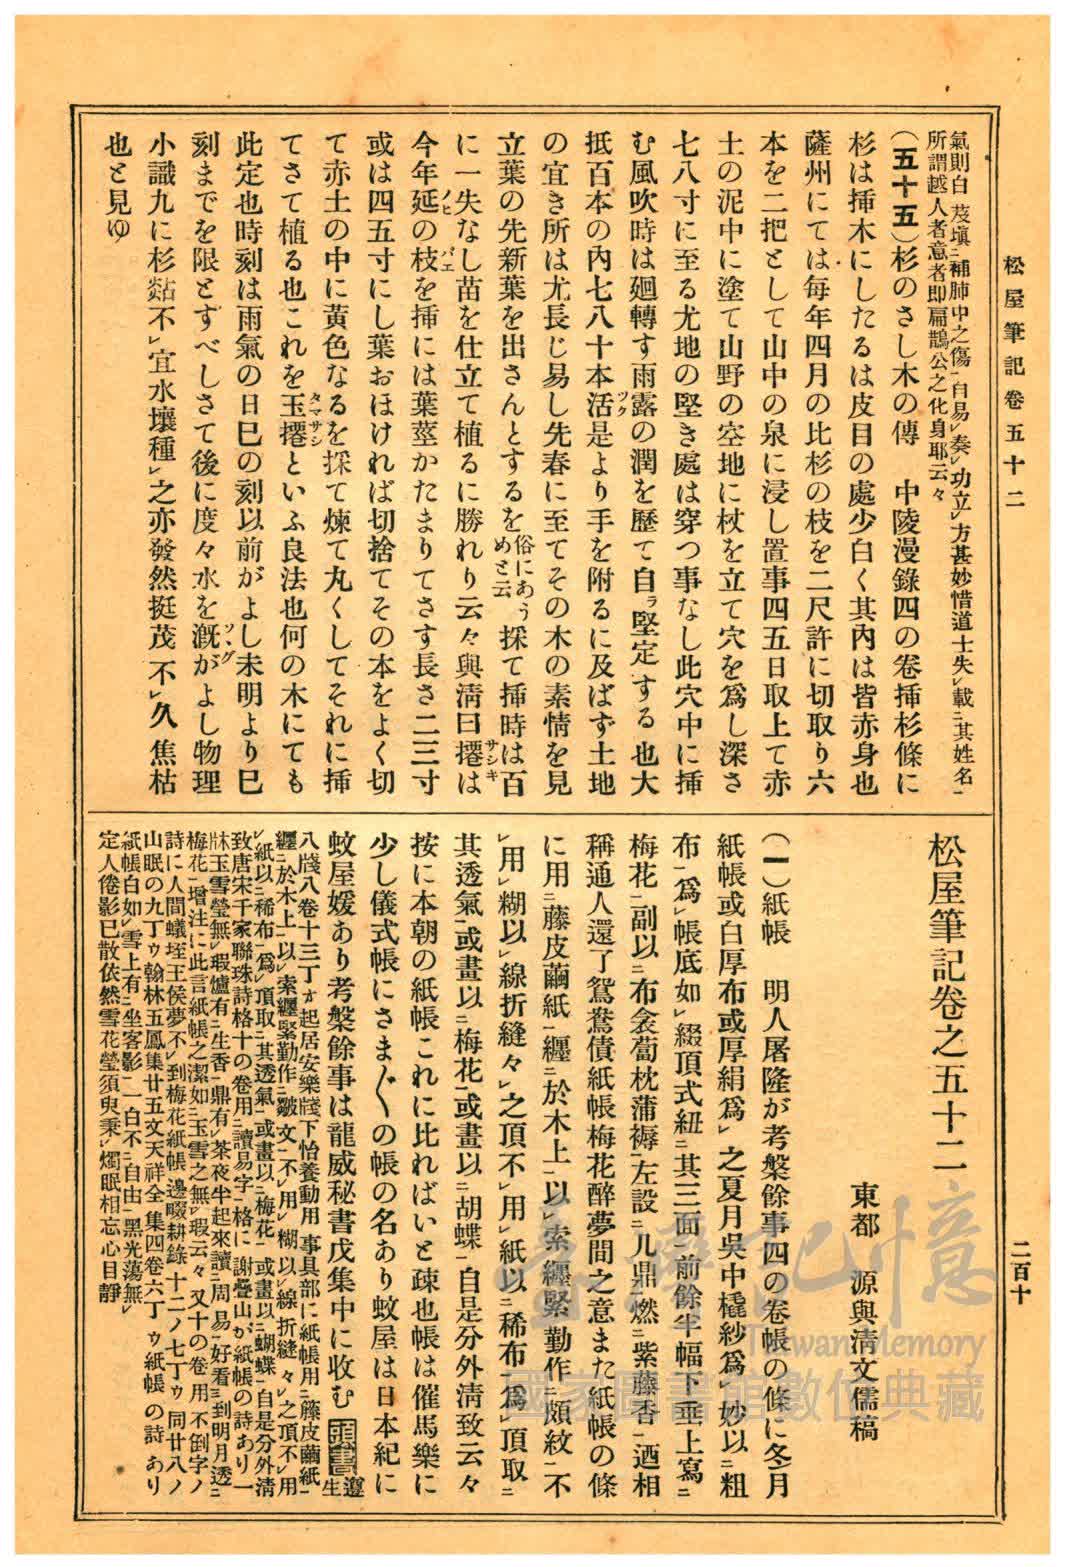 松屋筆記卷五十二
二百十
氣則白芨塡ニ補肺中之傷一自易レ奏レ功立レ方甚妙惜道士失レ載ニ其姓名一
所謂越人者意者即扁鵲公之化身耶云々
(五十五)杉のさし木の傳　中陵漫錄四の卷揷杉條に
杉は揷木にしたるは皮目の處少白く其內は皆赤身也
薩州にては每年四月の比杉の枝を二尺許に切取り六
本を二把として山中の泉に浸し置事四五日取上て赤
土の泥中に塗て山野の空地に杖を立て穴を爲し深さ
七八寸に至る尤地の堅き處は穿つ事なし此穴中に揷
む風吹時は廻轉す雨露の潤を歷て自ラ堅定する也大
抵百本の內七八十本活ツク是より手を附るに及ばず土地
の宜き所は尤長じ易し先春に至てその木の素情を見
立葉の先新葉を出さんとするを俗にあうめと云採て揷時は百
に一失なし苗を仕立て植るに勝れり云々與淸曰攓サシキは
今年延ノヒバエの枝を揷には葉莖かたまりてさす長さ二三寸
或は四五寸にし葉おほければ切捨てその本をよく切
て赤土の中に黃色なるを採て煉て丸くしてそれに揷
てさて植る也これを玉攓タマサシといふ良法也何の木にても
此定也時刻は雨氣の日巳の刻以前がよし未明より巳
刻までを限とすべしさて後に度々水を漑ソヽグがよし物理
小識九に杉䵑不レ宜水壤種レ之亦發然挺茂不レ久焦枯
也と見ゆ
松屋筆記卷之五十二
東都　源與淸文儒稿
(一)紙帳　明人屠隆が考槃餘事四の卷帳の條に冬月
紙帳或白厚布或厚絹爲レ之夏月吳中橇紗爲レ妙以ニ粗
布一爲レ帳底如レ綴頂式紐ニ其三面一前餘半幅下垂上寫ニ
梅花一副以ニ布衾蔔枕蒲褥一左設ニ几鼎一燃ニ紫藤香一迺相
稱通人還了鴛鴦債紙帳梅花醉夢間之意また紙帳の條
に用ニ藤皮繭紙一纏ニ於木上一以レ索纏緊勤作ニ皺紋一不
レ用レ糊以レ線折縫々レ之頂不レ用レ紙以ニ稀布一爲レ頂取ニ
其透氣一或畫以ニ梅花一或畫以ニ胡蝶一自是分外淸致云々
按に本朝の紙帳これに比ればいと疎也帳は催馬樂に
少し儀式帳にさま〴〵の帳の名あり蚊屋は日本紀に
蚊屋媛あり考槃餘事は龍威秘書戊集中に收む 頭書 遵生
八牋八卷十三丁オ起居安樂牋下怡養動用事具部に紙帳用ニ藤皮繭紙一
纏ニ於木上一以レ索纏緊勤作ニ皺文一不レ用レ糊以レ線折縫々レ之頂不レ用
レ紙以ニ稀布一爲レ頂取ニ其透氣一或畫以ニ梅花一或畫以ニ蝴蝶一自是分外淸
致唐宋千家聯珠詩格十の卷用ニ讀易字一格に謝疊山が紙帳の詩あり一
牀玉雪瑩無レ瑕爐有ニ生香一鼎有レ茶夜半起來讀ニ周易一好看ニ到明月透ニ
梅花一增注に此言紙帳之潔如ニ玉雪之無レ瑕云々又十の卷用不倒字ノ
詩に人間蟻垤王侯夢不レ到梅花紙帳邊畷耕錄十二ノ七丁ウ同廿八ノ
山眠の九丁ウ翰林五鳳集廿五文天祥全集四卷六丁ウ紙帳の詩あり
紙帳白如レ雪上有ニ坐客影一一白不ニ自由一黑光蕩無レ
定人倦影已散依然雪花瑩須臾秉レ燭眠相忘心目靜
臺灣記憶
Taiwan Memory
國家圖書館數位典藏